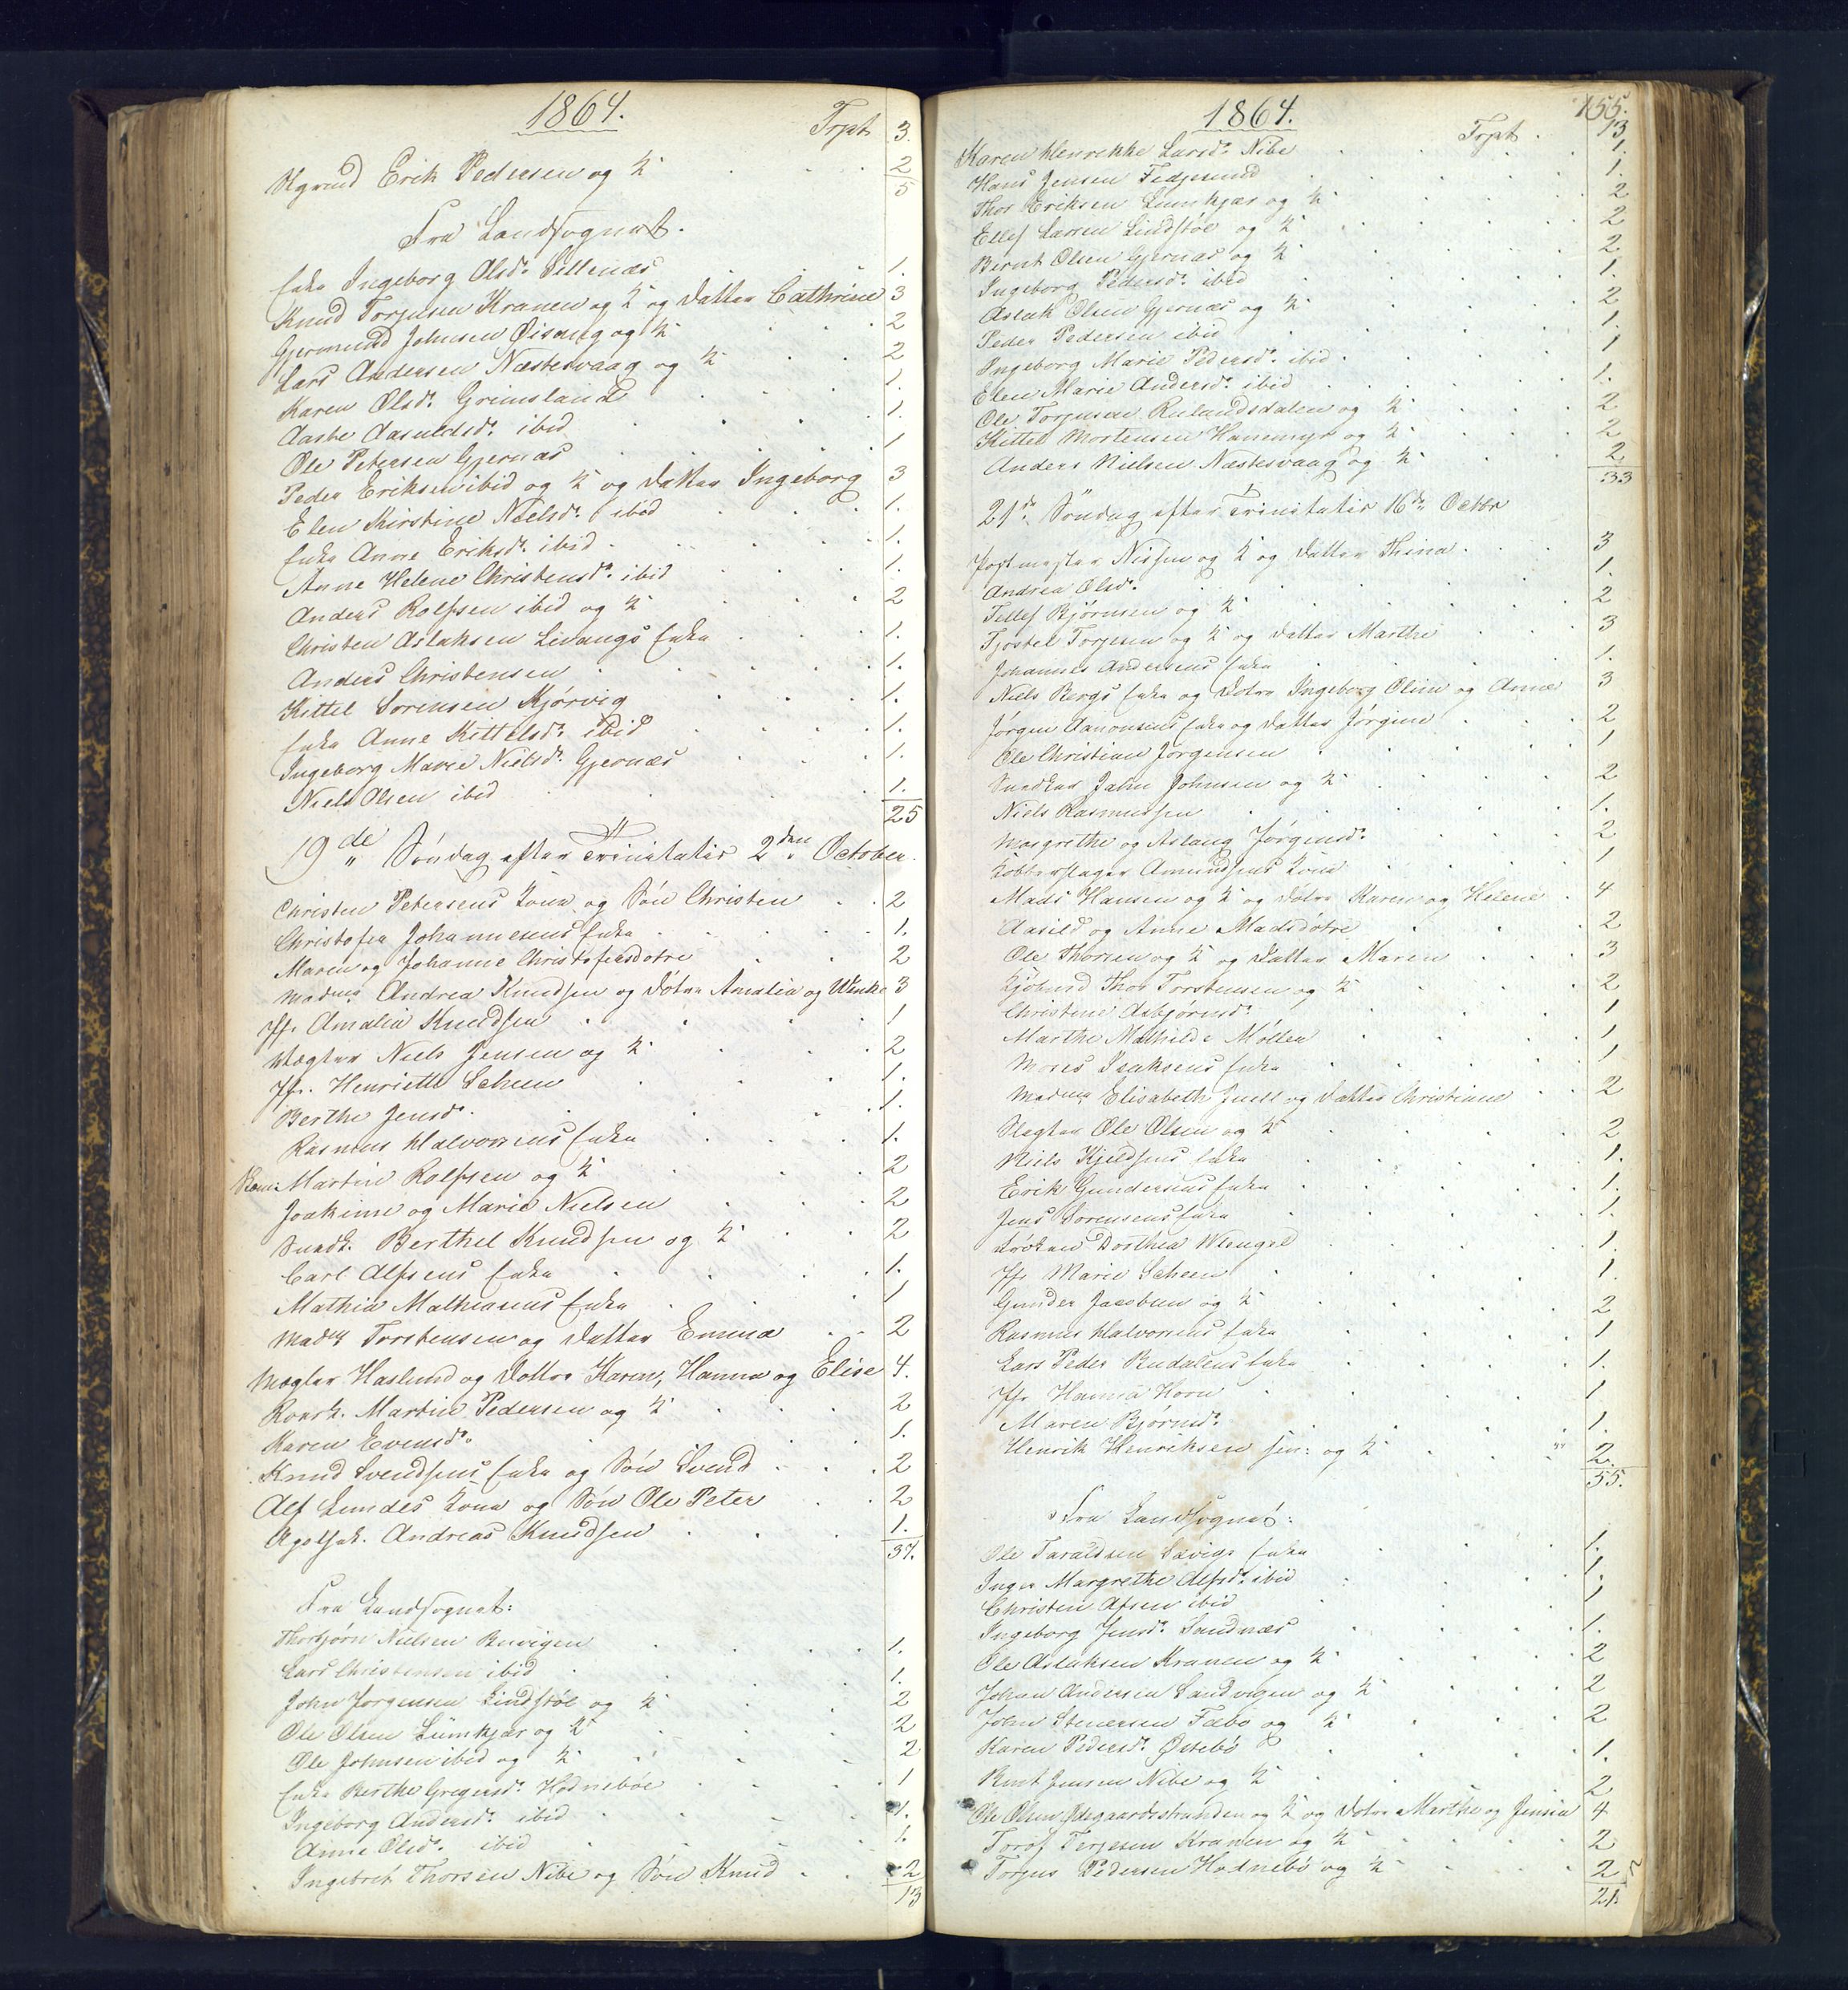 1864.
Trpt 3.
Erik Pedersen og K: 2
5
Fra Landsognet.
Enke Ingeborg Olsd: 1.
Knud Torjusen Kranen og K: og Datter Cathrine 3
Gjermund Johnsen og K: 2
Lars Andersen Næstesvaag og K: 2
Karen Olsd: Grimsland 1.
Aaste ibid 1.
Ole Petersen Gjernæs 1
Peder Eriksen ibid og K: og Datter Ingeborg 3
Elen Kirstine Nielsd: ibid 1.
Enke Anne Eriksd: ibid 1.
Anne Helene Christensd: ibid 1.
Anders Rolfsen ibid og K: 2
Christen Aslaksen Livangs Enke 1.
Anders Christensen 1.
Kittel Sørensen Kjørvig 1.
Enke Anne Kittelsd: ibid 1.
Ingeborg Marie Nielsd: Gjernæs 1.
Niels Olsen ibid 1.
25
19de Søndag efter Trinitatis 2den October
Christen Petersens Kone og Søn Christen 2
Christofer Johannesens Enke 1.
Maren og Johanne Christofersdøtre 2
Madme Andrea Knudsen og Døtre Amalia og Wenke 3
Jfr. Amalia Knudsen 1
Vægter Niels Jensen og K: 2
Jfr. Henriette Scheen 1.
Berthe Jensd: 1.
Rasmus Halvorsens Enke 1.
Martin Rolfsen og K: 2
Joakime og Marie Nielsen 2
Snedk. Berthel Knudsen og K: 2
Carl Alfsens Enke 1.
Mathia Mathiasens Enke 1
Madm Torstensen og Datter Emma 2
Mægler Haslund og Døttre Karen, Hanna og Elise 4.
Martin Pedersen og K: 2
Karen Evensd: 1.
Knud Svendsens Enke og Søn Svend 2
Alf Lundes Kone og Søn Ole Peter 2
Andreas Knudsen 1.
37.
Fra Landsognet:
Thorbjørn Nielsen Buvigen 1.
Lars Christensen ibid 1.
John Jørgensen Lindstøl og K: 2
Ole Olsen Lumkjær og K: 2
Ole Johnsen ibid og K: 2
Enke Berthe Gregersd: Hodnebøe 1
Ingeborg Andersd: ibid 1.
Anne Olsd: ibid 1.
Ingebret Thorsen Nibe og Søn Knud 2
13
155.
1864.
Trpt. 13
Karen Henrikke Larsd: Nibe 1.
Hans Jensen 1.
Thor Eriksen Lumkjær og K: 2
Ellef Larsen Lindstøl og K: 2
Bernt Olsen Gjernæs og K: 2
Ingeborg Pedersd: ibid 1.
Aslak Olsen Gjernæs og K: 2
Peder Pedersen ibid 1.
Ingeborg Marie Pedersd: ibid 1
Elen Marie Andersd: ibid 1.
Ole Torjusen Rulandsdalen og K: 2
Kittel Mortensen Hanemyr og K: 2
Anders Nielsen Næstesvaag og K: 2
33
21de Søndag efter Trinitatis 16de Octbr
Postmester Nissen og K: og Datter Thina 3
Andrea Olsd: 1.
Tellef Bjørnsen og K: 2
Tjostel Torjesen og K: og Datter Marthe 3
Johannes Andersens Enke 1.
Niels Bergs Enke og Døtre Ingeborg Oline og Anne 3
Jørgen Aanonsens Enke og Datter Jørgine 2
Ole Christian Jørgensen 1
Snedker Jahn Johnsen og K: 2
Niels Rasmussen 1.
Margrethe og Aslaug Jørgensd: 2
Kobberslager Amundsens Kone 1
Mads Hansen og K: og Døtre Karen og Helene 4
Aasild og Anne Madsdøtre 2
Ole Thorsen og K: og Datter Maren 3
Kjøbmd Thor Torstensen og K: 2
Christine Asbjørnsd: 1
Marthe Mathilde Møller 1
Moses Isaksens Enke 1
Madme Elisabeth Juell og Datter Christiane 2
Slagter Ole Olsen og K: 2
Niels Kjeldsens Enke 1.
Erik Gundersens Enke 1.
Jens Sørensens Enke 1.
Frøken Dorthea Wlengel 1.
Jfr. Marie Scheen 1.
Gunder Jacobsen og K: 2
Rasmus Halvorsens Enke 1
Lars Peder Enke 1.
Jfr. Hanna Horn 1
Maren Bjørnsd: 1.
Henrik Henriksen sen: og K: 2.
55.
Fra Landsognet:
Ole Taraldsen Sævigs Enke 1.
Inger Margrethe Alfsd: ibid 1.
Christen Alfsen ibid 1
Ingeborg Jensd: Sandnæs 1.
Ole Aslaksen Kranen og K: 2
Johan Andersen Sandvigen og K: 2
John Stenersen Fæbo og K: 2
Karen Pedersd: Østebø 1.
Knut Jensen Nibe og K: 2
Ole Olsen Ødegaardsstranden og K: og Døtre Marthe og Jensia 4
Torof Terjesen Kranen og K: 2
Torjus Pedersen Hodnebø og K: 2
21.